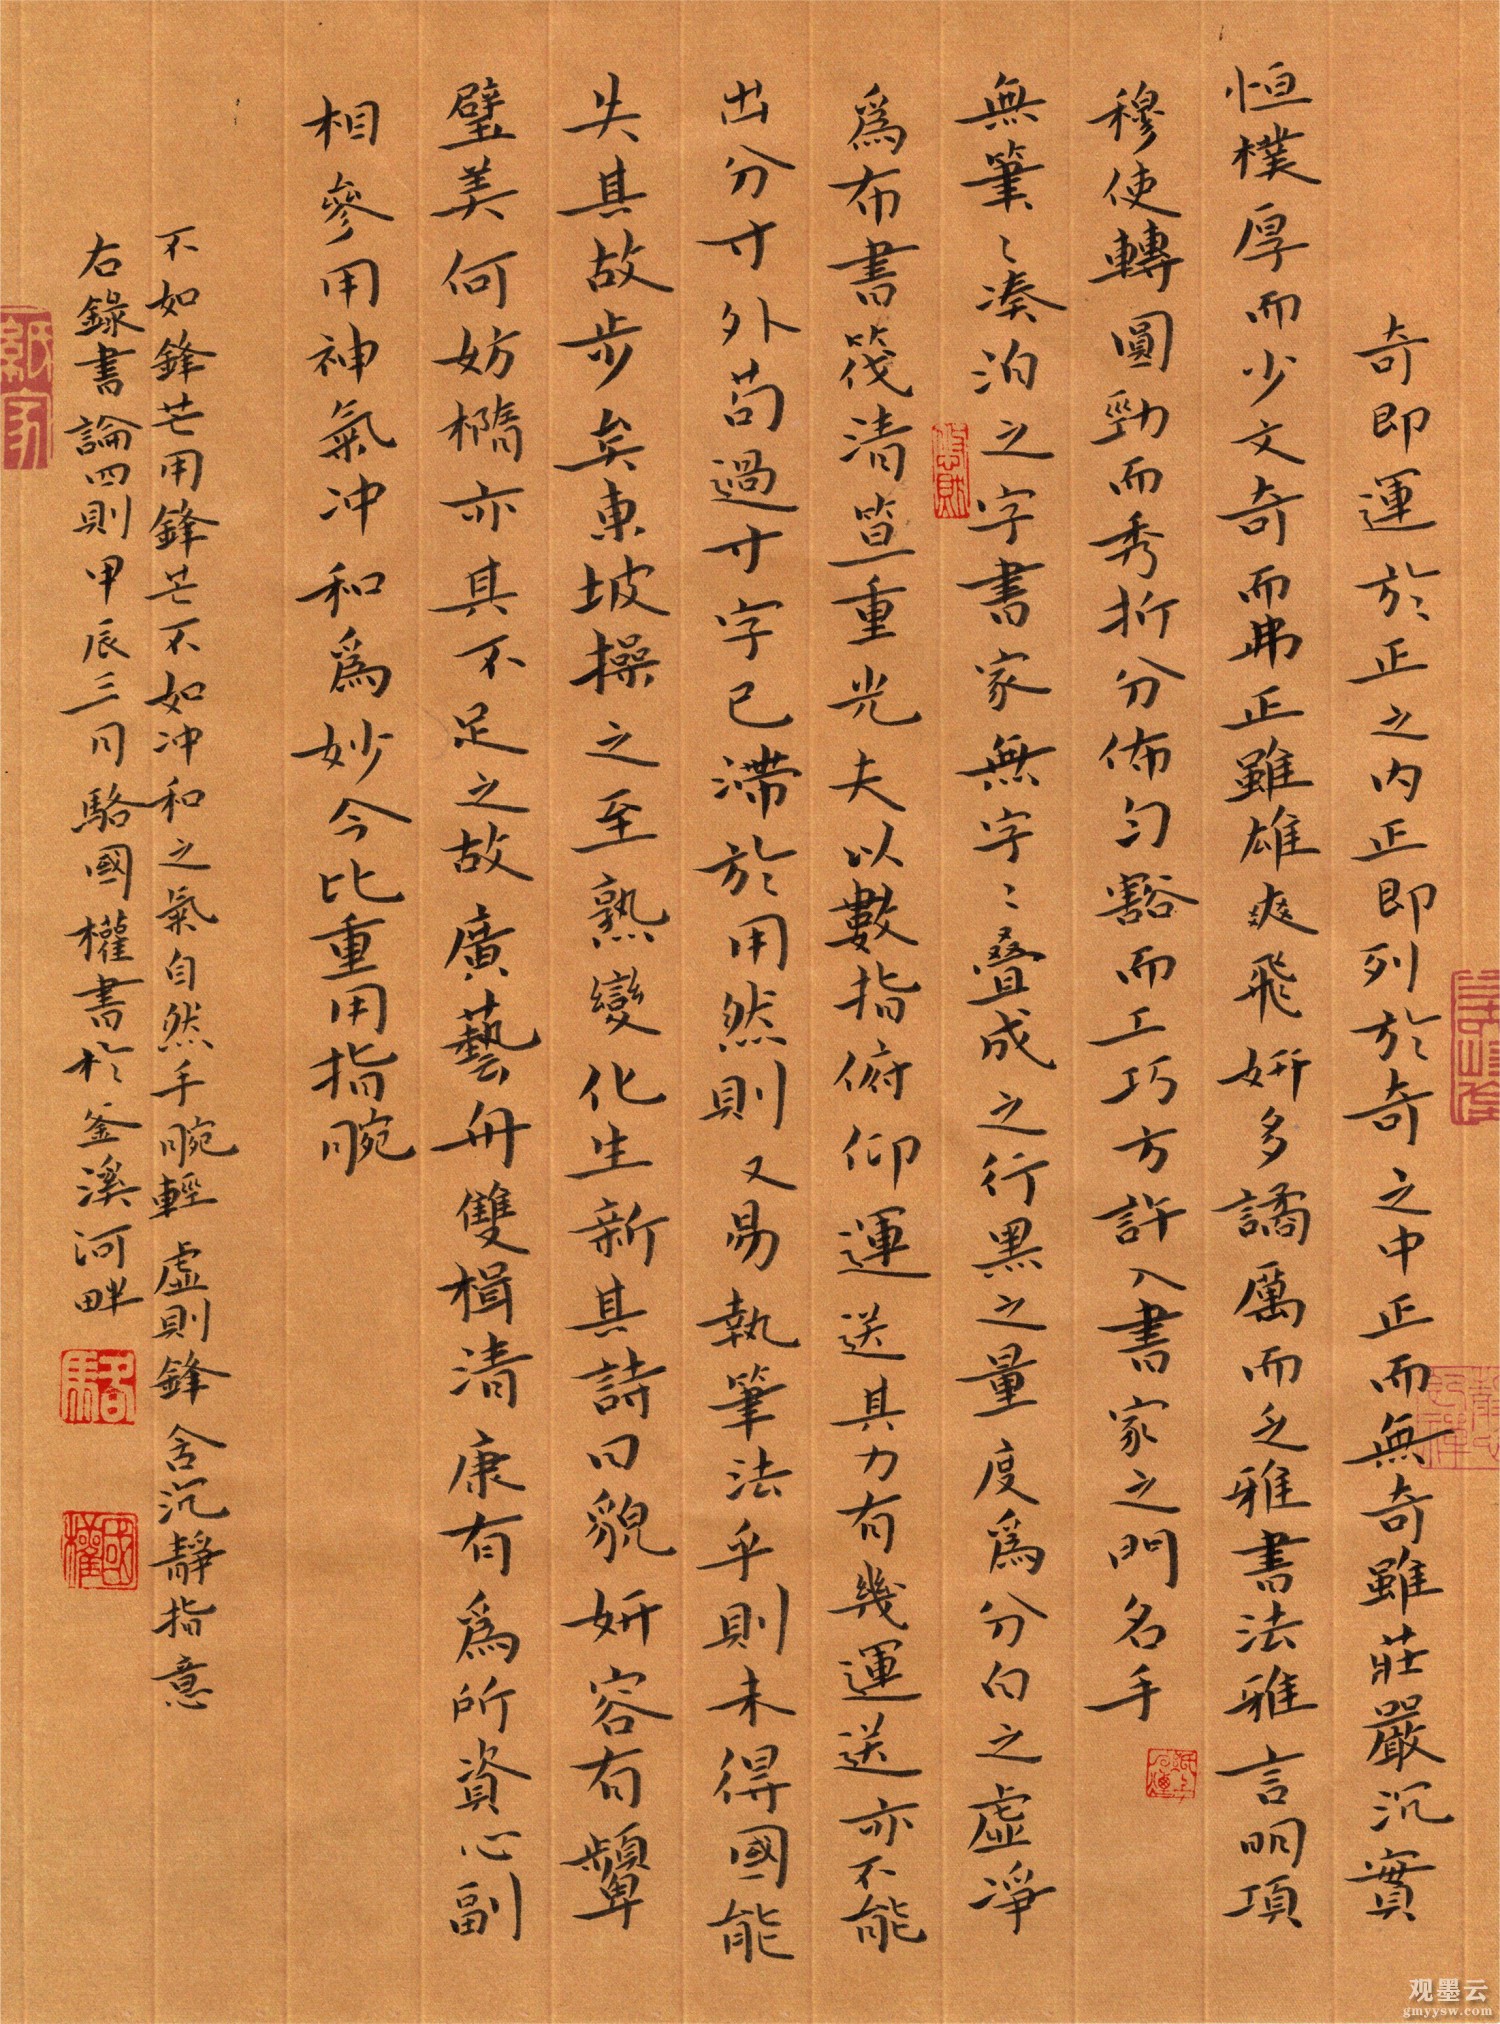 奇即運於正之内正即列於奇之中正而無奇雖莊嚴沉實
恒樸厚而少文奇而弗正雖雄爽飛妍多譎厲而乏雅書法雅言明項
穆使轉圓勁而秀折分佈勻豁而工巧方許入書家之門名手
無筆〻湊泊之字書家無字〻疊成之行黑之量度為分白之虛淨
為布書筏清笪重光夫以數指俯仰運送其力有幾運送亦不能
出分寸外苟過寸字已滯於用然則又易執筆法乎則未得國能
失其故步矣東坡操之至熟變化生新其詩曰貌妍容有顰
璧美何妨橢亦其不足之故廣藝舟雙楫清康有為所資心副
相參用神氣冲和為妙今比重用指腕
不如鋒芒用鋒芒不如冲和之氣自然手腕輕虛則鋒含沉靜指意
右錄書論四則甲辰三月駱國權書於釜溪河畔
國權
观墨云
gmyysw.com